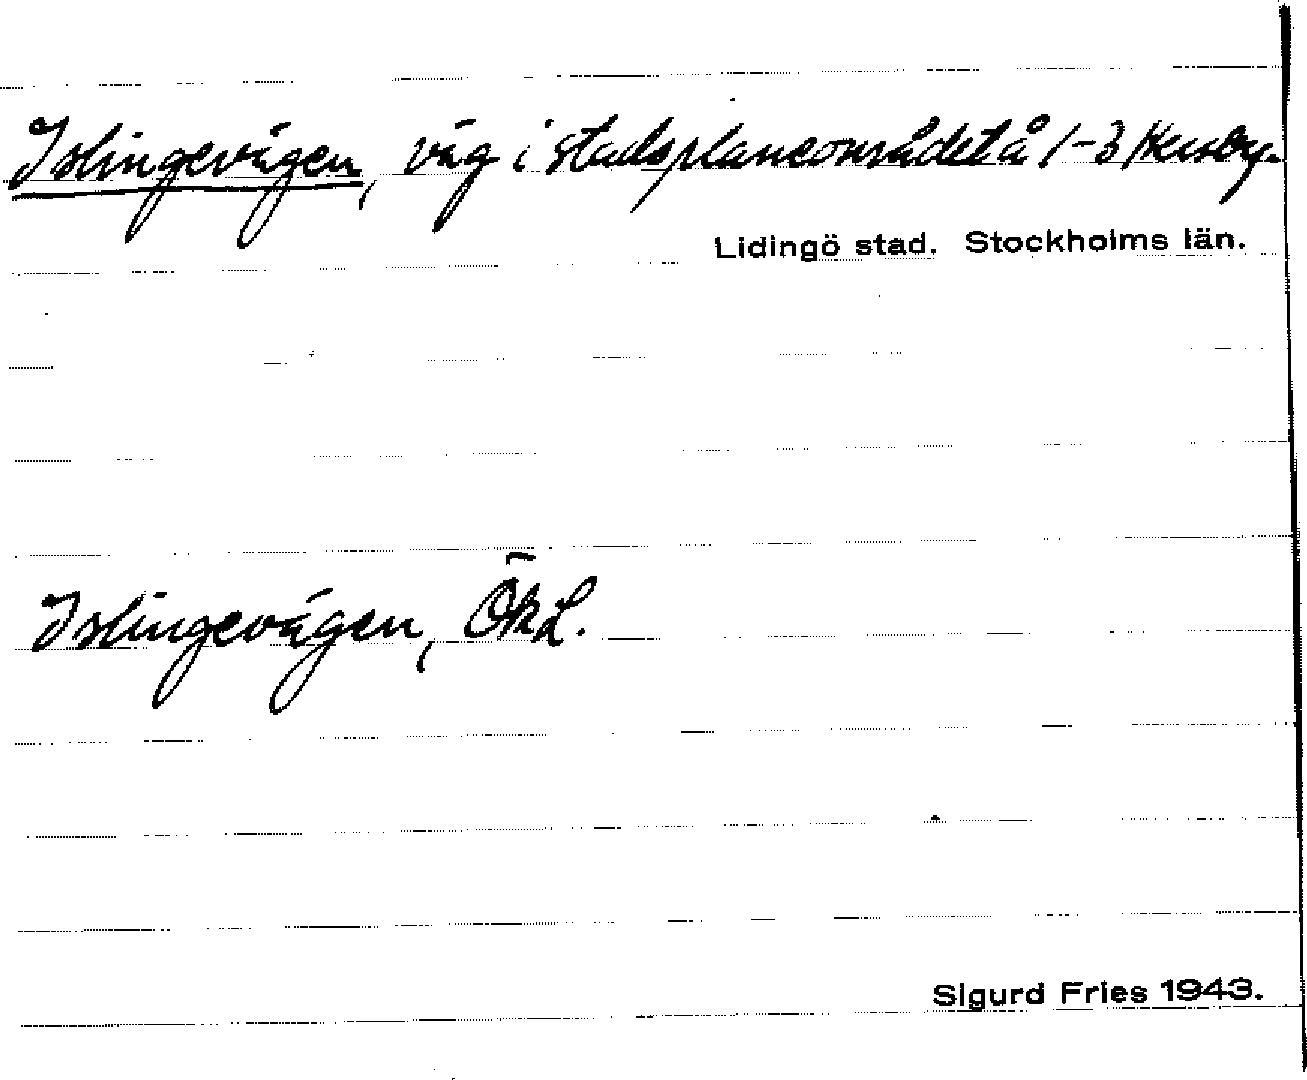 Islingevägen, väg i stadsplaneområdet å 1-3 Hersby.
Lidingö stad. Stockholms län.
Islingevägen, ÖkL.
Sigurd Fries 1943.